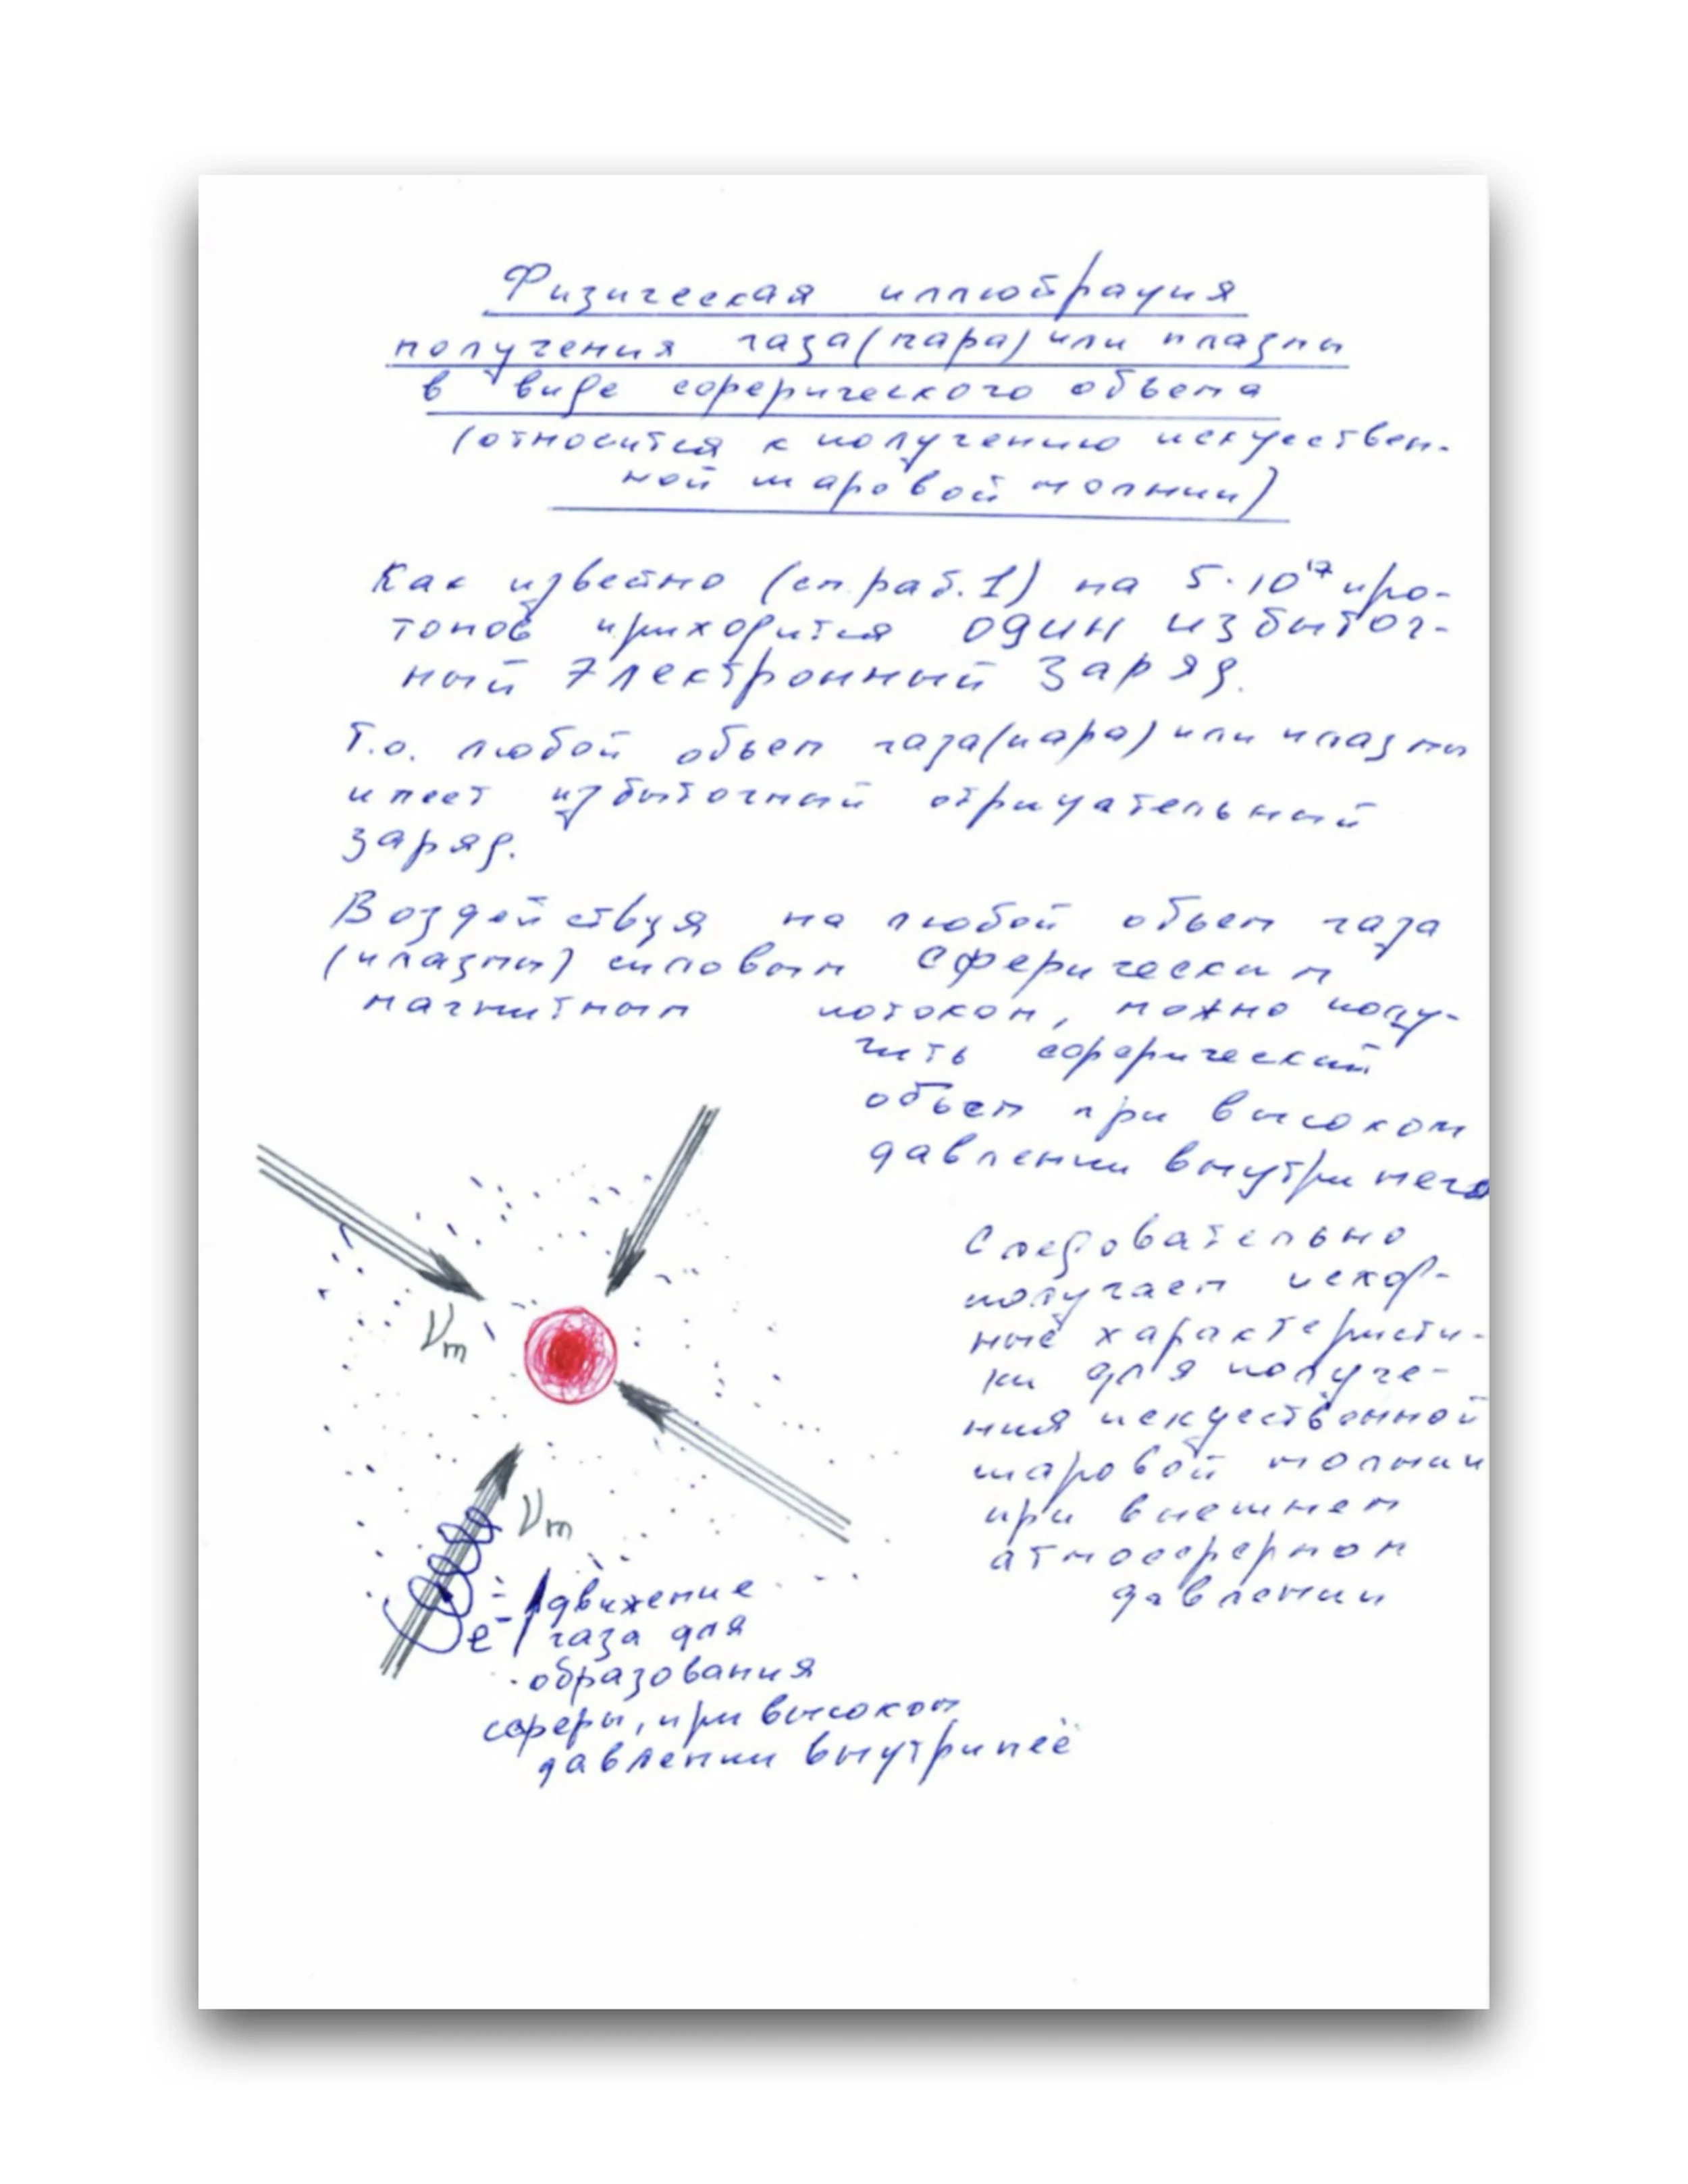 Физическая иллюстрация
получения газа (пара) или плазмы
в виде сферического объема
(относится к получению искуствен-
ной шаровой молнии)
Как известно (см. раб. 1) на 5·10¹⁷ про-
тонов приходится один избыточ-
ный электронный заряд.
Т.о. любой объем газа (пара) или плазмы
имеет избыточный отрицательный
заряд.
Воздействуя на любой объем газа
(плазмы) силовым сферическим
магнитным потоком, можно полу-
чить сферический
объем при высоком
давлении внутри него
Следовательно
получаем исход-
ные характеристи-
ки для получе-
ния искуственной
шаровой молнии
при внешнем
атмосферном
давлении
νm
νm
e⁻
движение
газа для
образования
сферы, при высоком
давлении внутри неё